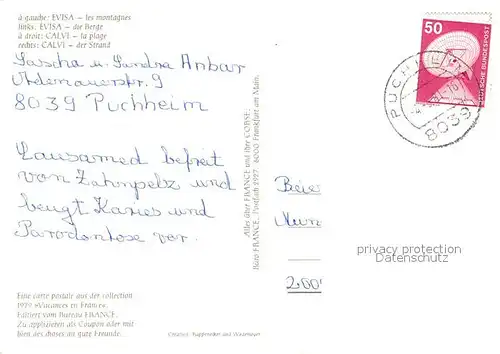 à gauche: EVISA – les montagnes
links: EVISA – die Berge
à droit: CALVI – la plage
rechts: CALVI – der Strand
Sascha u. Sandra Anbar
Ardenauerstr. 9
8039 Puchheim
Lausamed befreit
von Zahnpelz und
beugt Karies und
Parodontose vor.
Eine carte postale aus der collection
1979 »Vacances en France«.
Editiert vom Bureau FRANCE.
Zu applizieren als Coupon oder mit
bien des choses an gute Freunde.
Alles über FRANCE und ihre CORSE:
Büro FRANCE, Postfach 2927, 6000 Frankfurt am Main.
50
DEUTSCHE BUNDESPOST
PUCHHEIM
8039
Beie
Mün
2000
privacy protection
Datenschutz